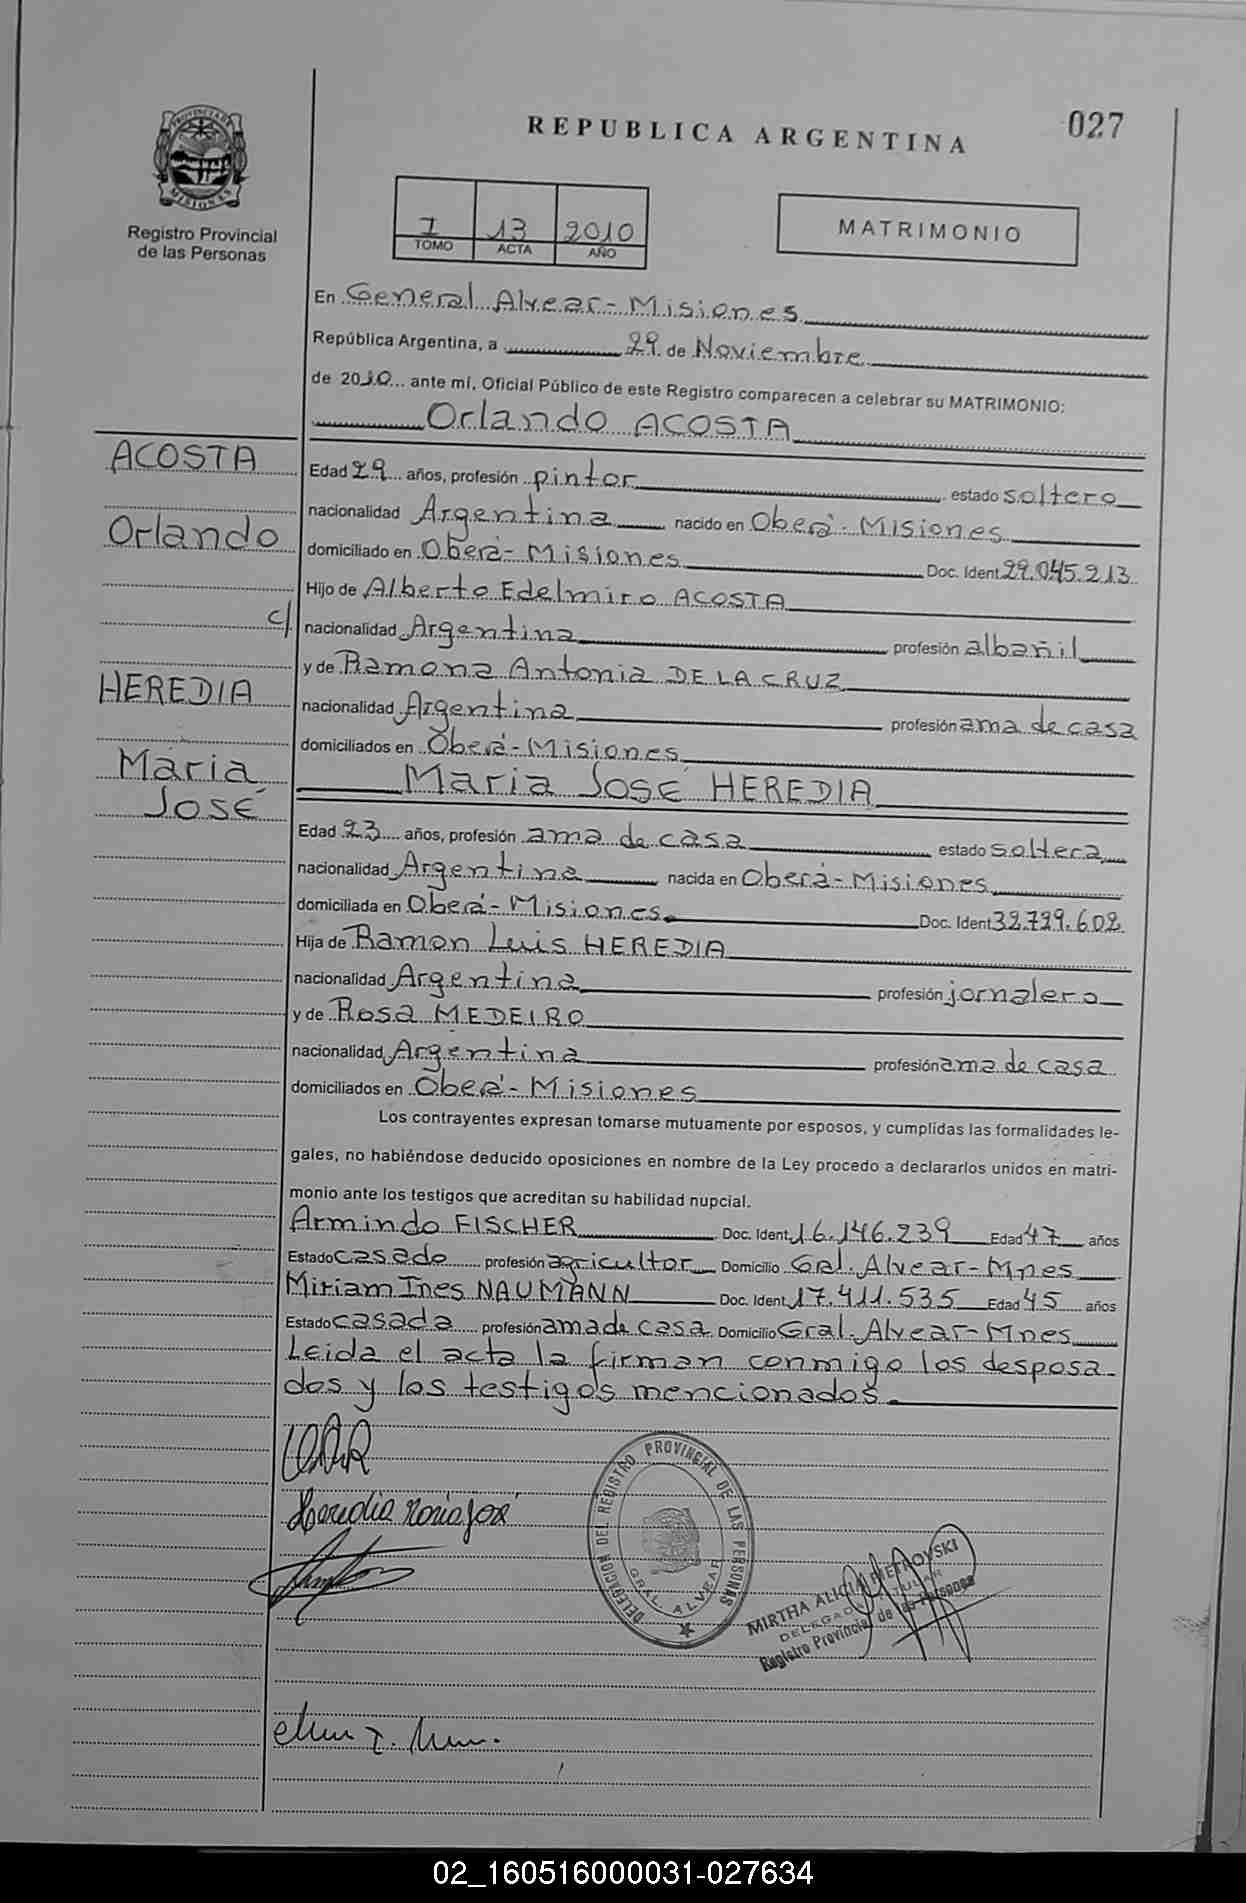 027
REPUBLICA ARGENTINA
PROVINCIA DE
MISIONES
Registro Provincial
de las Personas
I 13 2010
TOMO ACTA AÑO
MATRIMONIO
En General Alvear-Misiones
República Argentina, a 29 de Noviembre
de 2010 ante mí, Oficial Público de este Registro comparecen a celebrar su MATRIMONIO:
Orlando ACOSTA
ACOSTA
Orlando
c/
HEREDIA
Maria
José
Edad 29 años, profesión pintor estado soltero
nacionalidad Argentina nacido en Oberá-Misiones
domiciliado en Oberá-Misiones Doc. Ident. 29.045.213
Hijo de Alberto Edelmiro ACOSTA
nacionalidad Argentina profesión albañil
y de Ramona Antonia DE LA CRUZ
nacionalidad Argentina profesión ama de casa
domiciliados en Oberá-Misiones
Maria José HEREDIA
Edad 23 años, profesión ama de casa estado soltera
nacionalidad Argentina nacida en Oberá-Misiones
domiciliada en Oberá-Misiones Doc. Ident. 32.729.602
Hija de Ramon Luis HEREDIA
nacionalidad Argentina profesión jornalero
y de Rosa MEDEIRO
nacionalidad Argentina profesión ama de casa
domiciliados en Oberá-Misiones
Los contrayentes expresan tomarse mutuamente por esposos, y cumplidas las formalidades le-
gales, no habiéndose deducido oposiciones en nombre de la Ley procedo a declararlos unidos en matri-
monio ante los testigos que acreditan su habilidad nupcial.
Armindo FISCHER Doc. Ident. 16.146.239 Edad 47 años
Estado casado profesión agricultor Domicilio Gral. Alvear-Mnes
Miriam Ines NAUMANN Doc. Ident. 17.411.535 Edad 45 años
Estado casada profesión ama de casa Domicilio Gral. Alvear-Mnes
Leida el acta la firman conmigo los desposa-
dos y los testigos mencionados.
Heredia Maria José
DELEGACION DEL REGISTRO PROVINCIAL DE LAS PERSONAS
GRAL. ALVEAR
MIRTHA ALICIA PIETROVSKI
DELEGADA TITULAR
Registro Provincial de las Personas
02_160516000031-027634